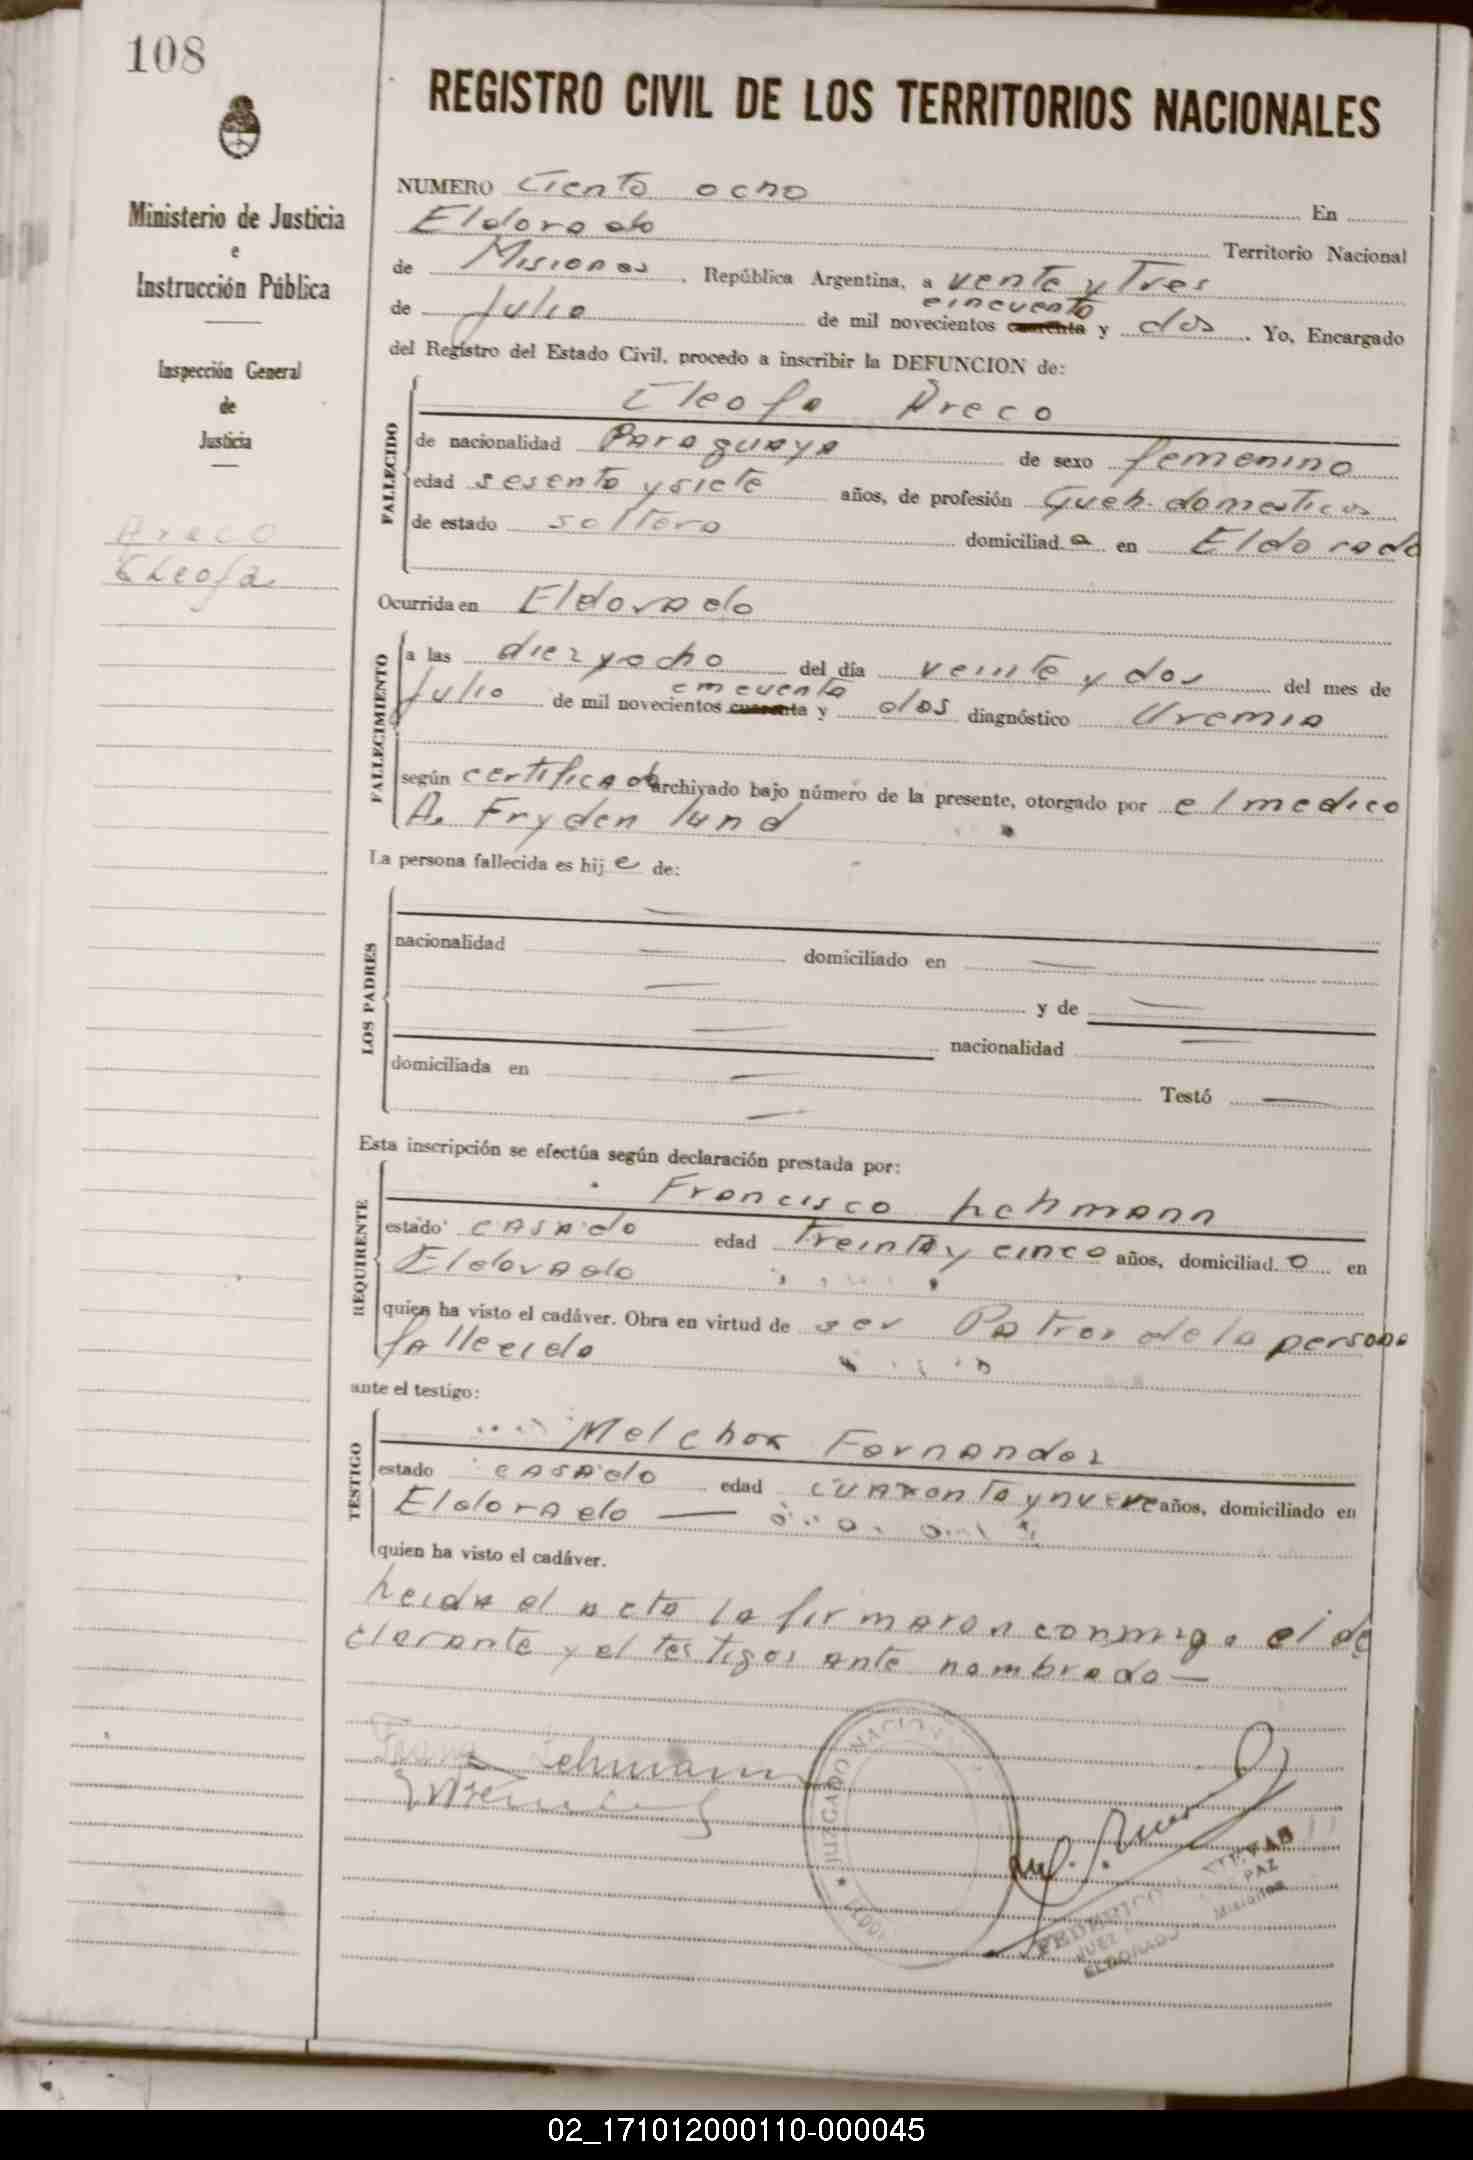 108
REGISTRO CIVIL DE LOS TERRITORIOS NACIONALES
Ministerio de Justicia
e
Instrucción Pública
Inspección General
de
Justicia
Areco
Cleofa
NUMERO Ciento ocho En
Eldorado Territorio Nacional
de Misiones, República Argentina, a vente y Tres
cincuenta
de Julio de mil novecientos cuarenta y dos. Yo, Encargado
del Registro del Estado Civil, procedo a inscribir la DEFUNCION de:
FALLECIDO
Cleofa Areco
de nacionalidad Paraguaya de sexo femenino
edad sesenta y siete años, de profesión Queh. domesticos
de estado soltera domiciliad a en Eldorado
Ocurrida en Eldorado
FALLECIMIENTO
a las diez y ocho del día veinte y dos del mes de
cincuenta
Julio de mil novecientos cuarenta y dos diagnóstico Uremia
según certificado archivado bajo número de la presente, otorgado por el medico
A. Frydenlund
La persona fallecida es hij e de:
LOS PADRES
nacionalidad — domiciliado en —
— y de —
— nacionalidad —
domiciliada en — Testó —
—
Esta inscripción se efectúa según declaración prestada por:
REQUIRENTE
Francisco Lehmann
estado casado edad treinta y cinco años, domiciliad o en
Eldorado
quien ha visto el cadáver. Obra en virtud de ser Patron de la persona
fallecida
ante el testigo:
TESTIGO
Melchor Fernandez
estado casado edad cuarenta y nueve años, domiciliado en
Eldorado —
quien ha visto el cadáver.
Leida el acta la firmaron conmigo el de
clarante y el testigos ante nombrado —
Lehmann
JUZGADO NACIONAL
FEDERICO
JUEZ PAZ
ELDORADO Misiones
02_171012000110-000045